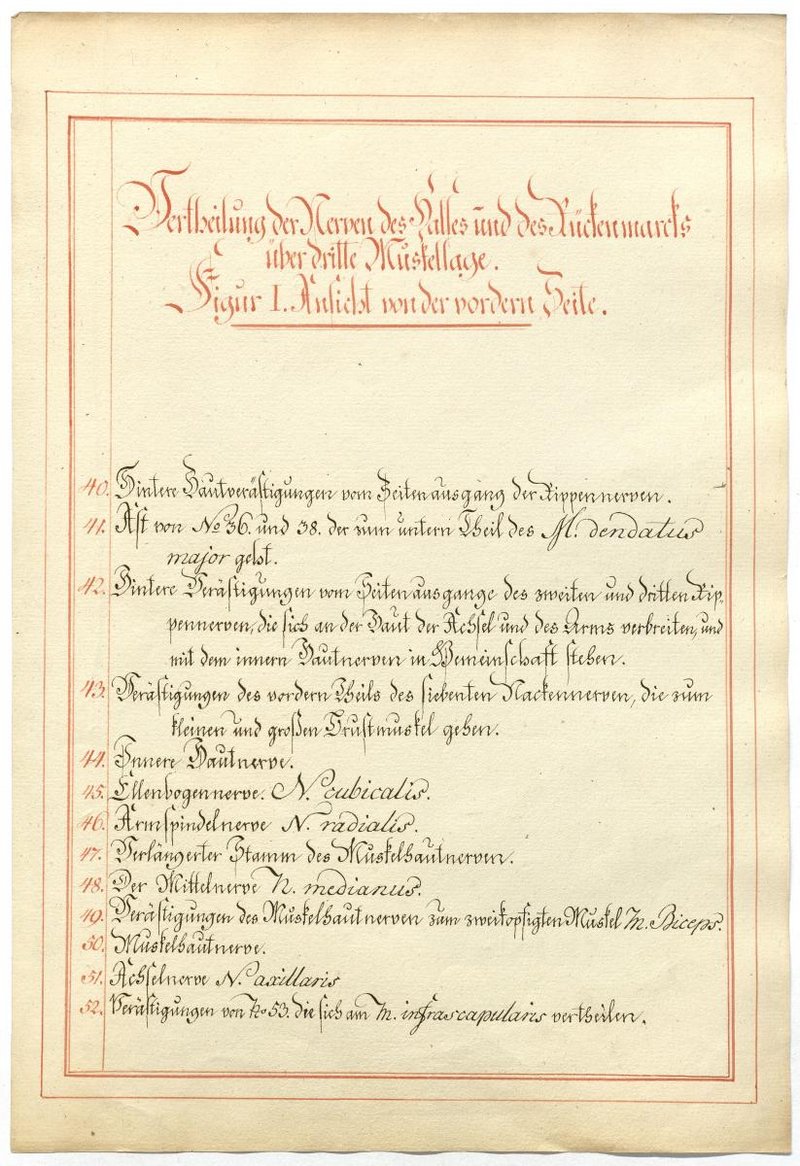 Vertheilung der Nerven des Halses und des Rückenmarcks
über dritte Muskellage.
Figur I. Ansicht von der vordern Seite.
40. Hintere Hautverästigungen vom Seitenausgang der Rippennerven.
41. Ast von No 36. und 38. der zum untern Theil des M. dendatus
major geht.
42. Hintere Verästigungen vom Seitenausgange des zweiten und dritten Rip-
pennerven, die sich an der Haut der Achsel und des Arms verbreiten, und
mit dem innern Hautnerven in Gemeinschaft stehen.
43. Verästigungen des vordern Theils des siebenten Nackennerven, die zum
kleinen und großen Brustmuskel gehen.
44. Innere Hautnerve.
45. Ellenbogennerve. N. cubicalis.
46. Armspindelnerve N. radialis.
47. Verlängerter Stamm des Muskelhautnerven.
48. Der Mittelnerve N. medianus.
49. Verästigungen des Muskelhautnerven zum zweikopfigten Muskel M. Biceps.
50. Muskelhautnerve.
51. Achselnerve N. axillaris
52. Verästigungen von No 53. die sich am M. infrascapularis vertheilen.